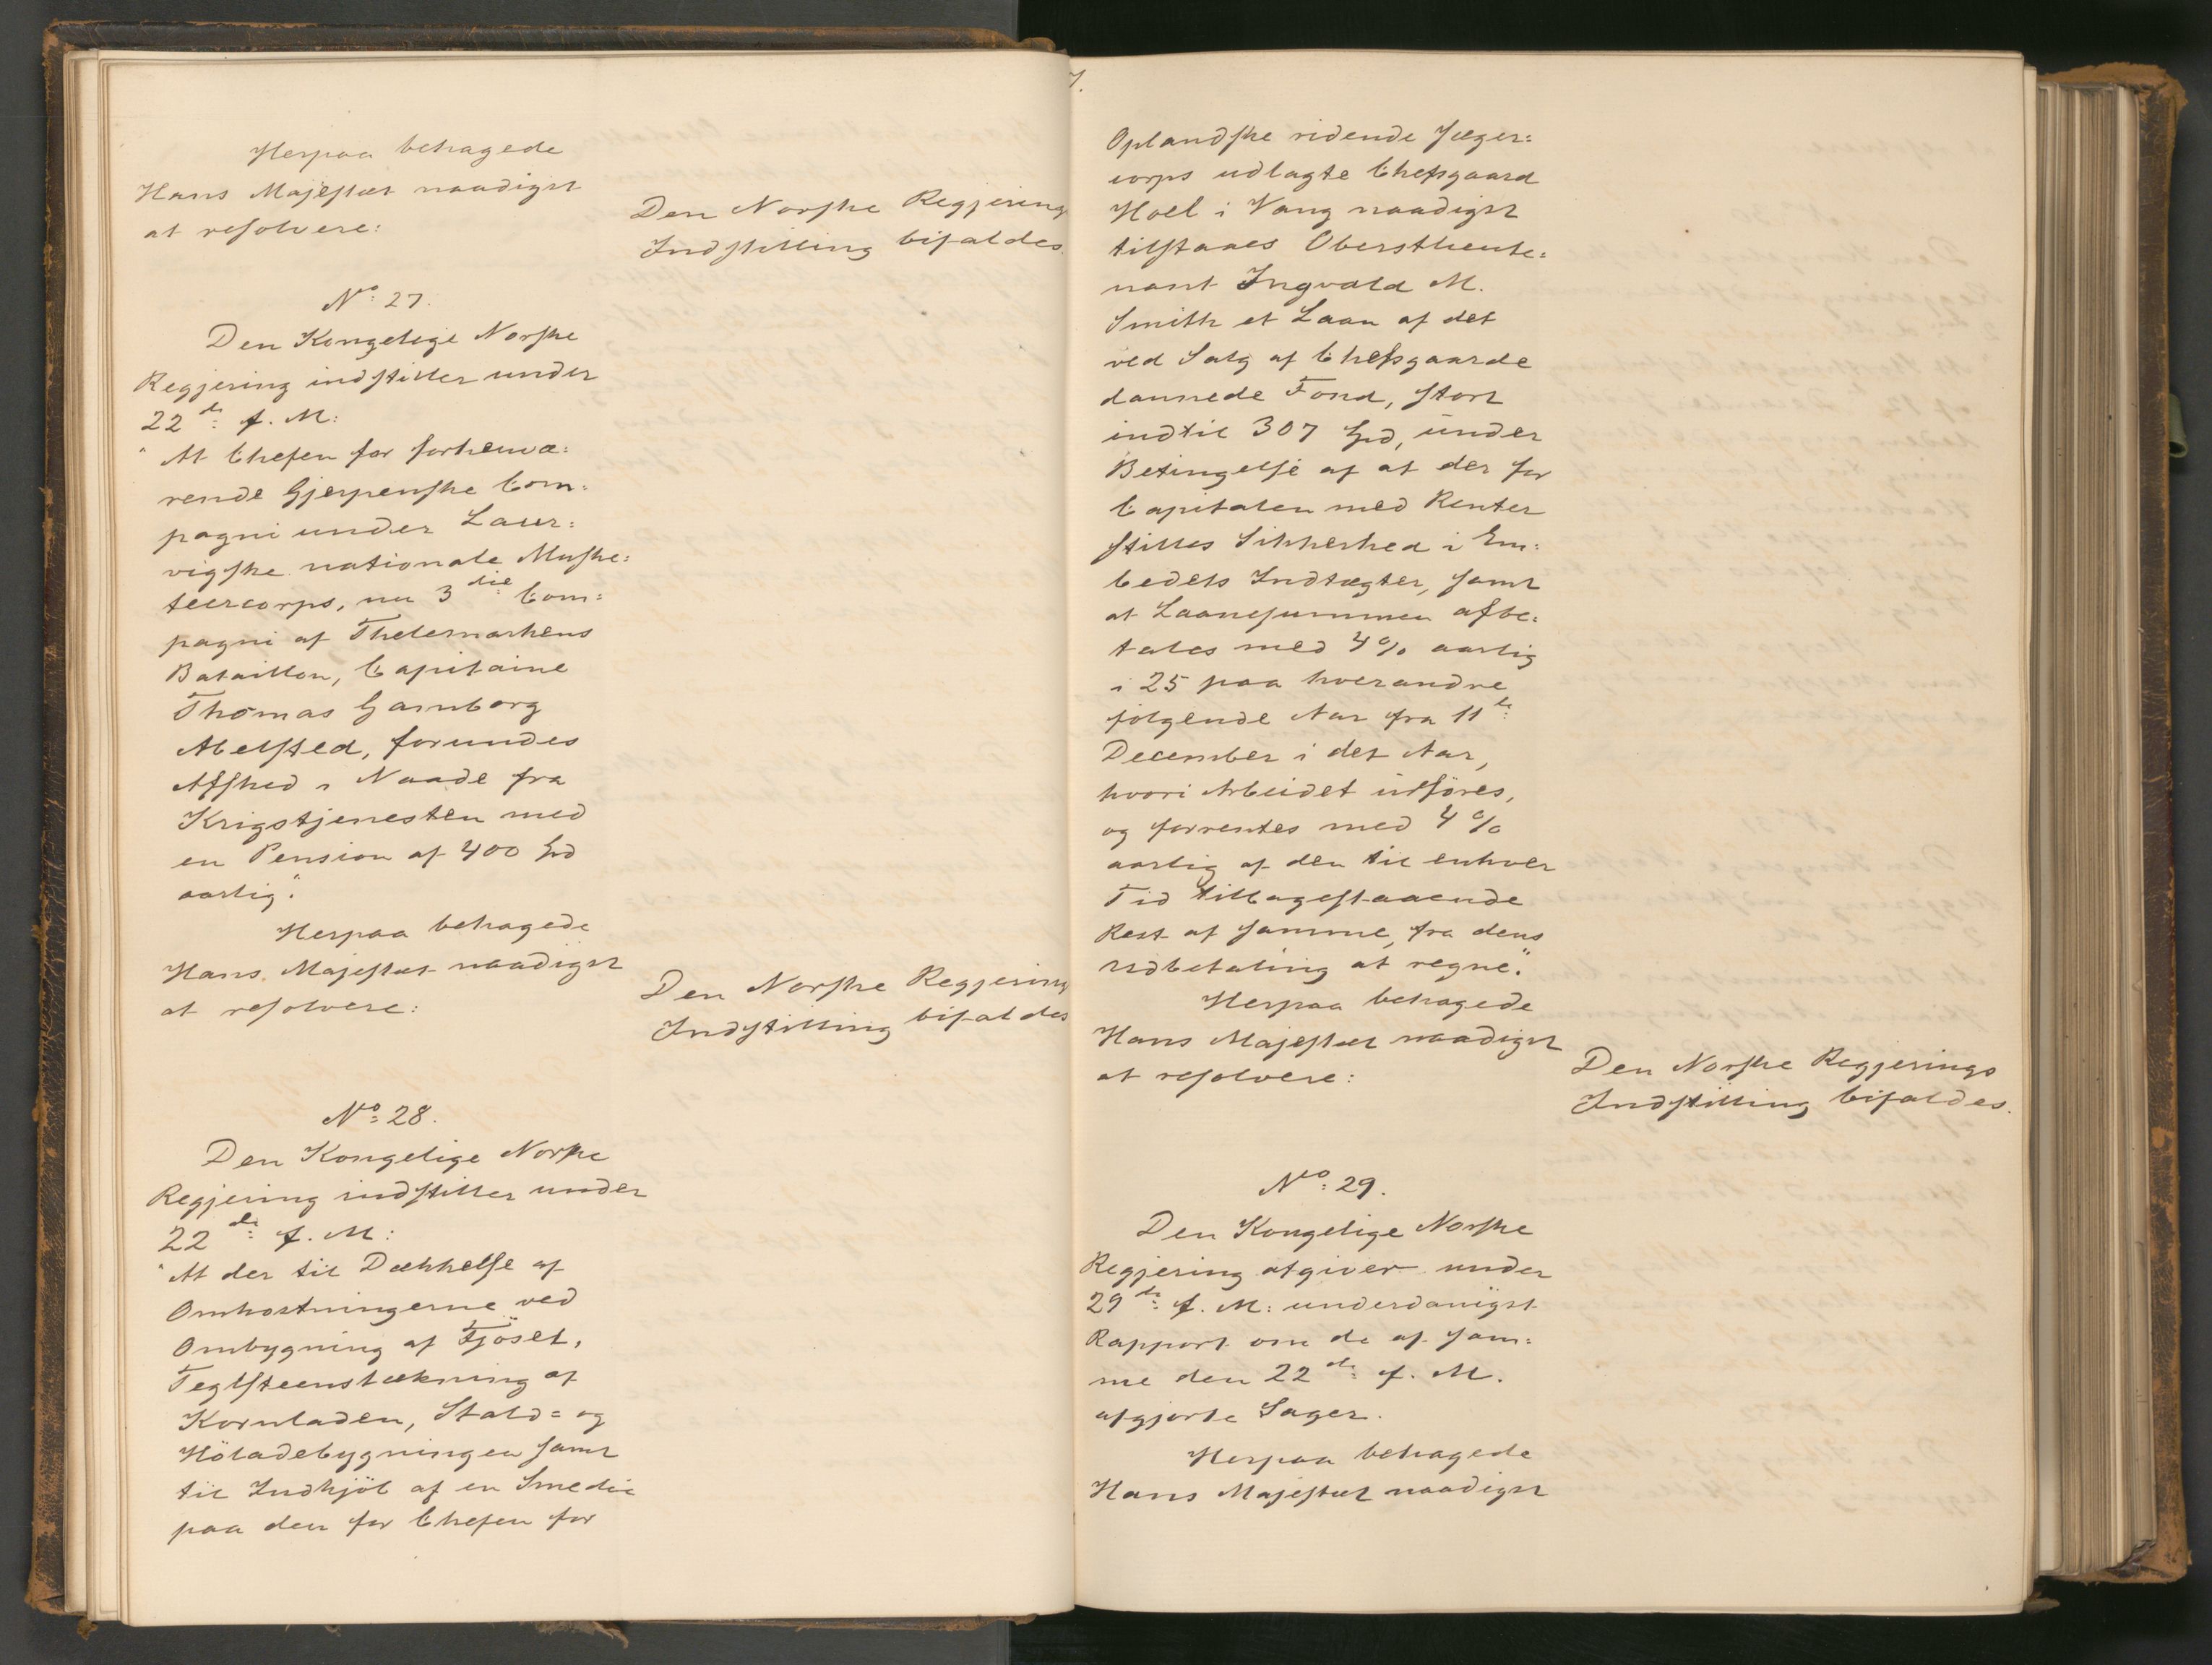 Herpaa behagede
Hans Majestæt naadigst
at resolvere:
Den Norske Regjerings
Indstilling bifaldes.
No: 27.
Den Kongelige Norske
Regjering indstiller under
22de f. M:
"At Chefen for forhenvæ:
rende Gjerpenske Com:
pagni under Laur:
vigske nationale Muske:
teercorps, nu 3die Com:
pagni af Thelemarkens
Bataillon, Capitaine
Thomas Gamborg
Abelsted, forundes
Afsked i Naade fra
Krigstjenesten med
en Pension af 400 Spd
aarlig".
Herpaa behagede
Hans Majestæt naadigst
at resolvere:
Den Norske Regjerings
Indstilling bifaldes
No: 28.
Den Kongelige Norske
Regjering indstiller under
22de f. M:
"At der til Dækkelse af
Omkostningerne ved
Ombygning af Fjöset,
Teglsteenstækning af
Kornladen, Stald= og
Höladebygningen samt
til Indkjöb af en Smedie
paa den for Chefen for
7.
Oplandske ridende Jæger:
corps udlagte Chefsgaard
Hoel i Vang naadigst
tilstaaes Oberstlieute:
nant Ingvald M.
Smith et Laan af det
ved Salg af Chefsgaarde
dannede Fond, stort
indtil 307 Spd, under
Betingelse af at der for
Capitalen med Renter
stilles Sikkerhed i Em:
bedets Indtægter, samt
at Laanesummen afbe:
tales med 4% aarlig
i 25 paa hverandre
følgende Aar fra 11te
December i det Aar,
hvori Arbeidet udföres,
og forrentes med 4%
aarlig af den til enhver
Tid tilbagestaaende
Rest af samme, fra dens
Udbetaling at regne."
Herpaa behagede
Hans Majestæt naadigst
at resolvere:
Den Norske Regjerings
Indstilling bifaldes.
No: 29.
Den Kongelige Norske
Regjering afgiver under
29de f. M: underdanigst
Rapport om de af sam:
me den 22de f. M.
afgjorte Sager.
Herpaa behagede
Hans Majestæt naadigst